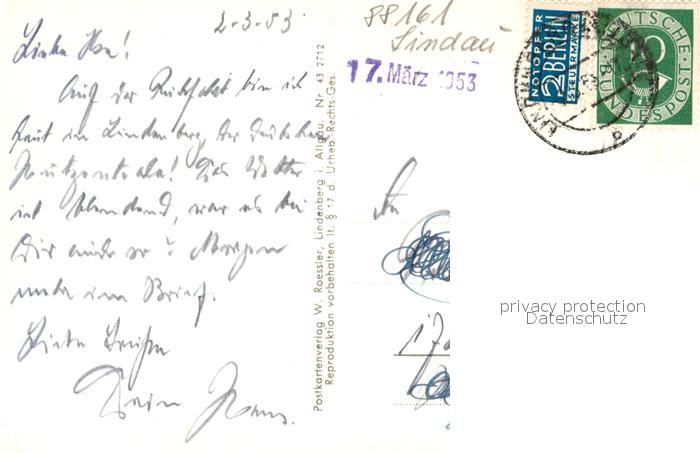 2-3-53
Auf der Rückfahrt bin ich
in Lindenberg, der Deutschen
Hutzentrale! Das Wetter
ist blendend, war es bei
Dir auch so? Morgen
mehr im Brief.
Liebe Grüße
Dein Hans.
Postkartenverlag W. Roessler, Lindenberg i. Allgäu. Nr 43 2712
Reproduktion vorbehalten lt. § 17 d. Urheb.-Rechts-Ges.
88161
Lindau
17. März 1953
NOTOPFER
2 BERLIN
STEUERMARKE
DEUTSCHE
BUNDESPOST
An
privacy protection
Datenschutz